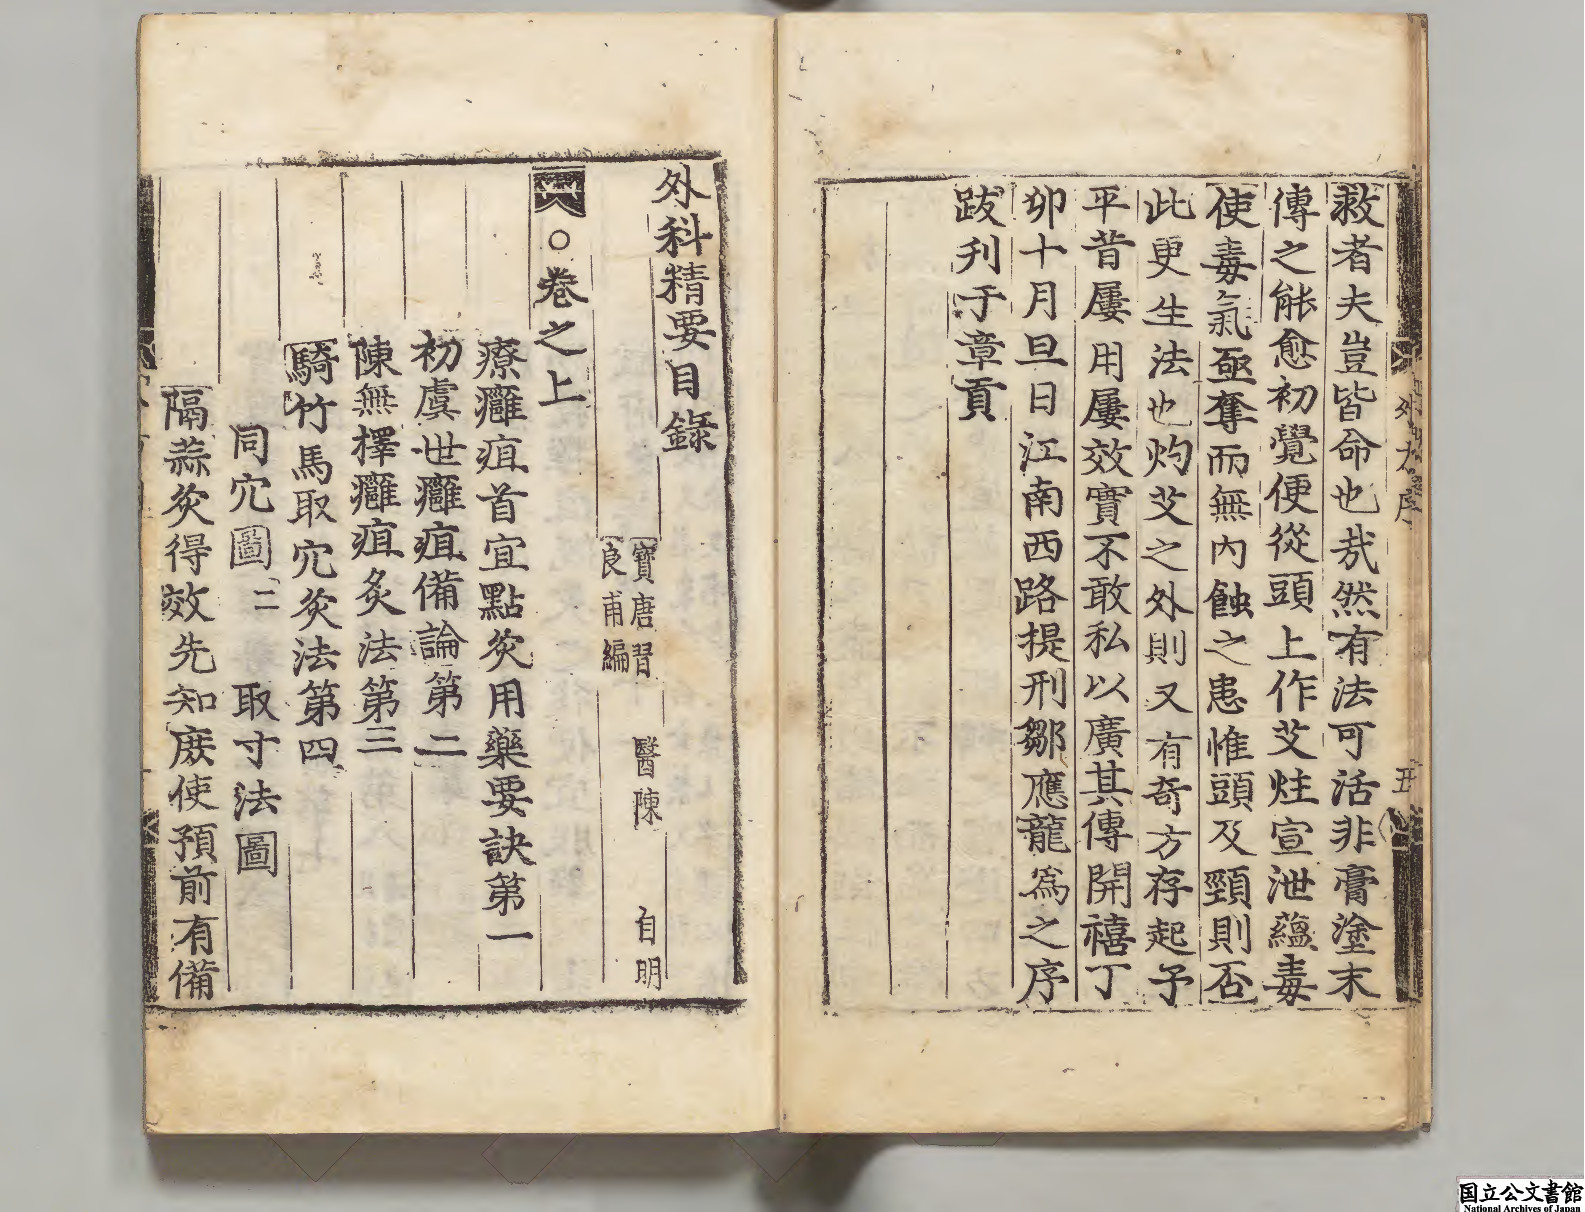 救者夫豈皆命也㢤然有法可活非膏塗末
傳之能愈初覺便從頭上作艾炷宣泄蘊毒
使毒氣亟奪而無內蝕之患惟頭及頸則否
此更生法也灼艾之外則又有奇方存起予
平昔屢用屢效實不敢私以廣其傳開禧丁
卯十月旦日江南西路提刑鄒應龍爲之序
跋刋于章貢
外科精要目錄
寶唐習 醫陳 自明
良甫編
○卷之上
療癰疽首宜點灸用藥要訣第一
初虞世癰疽備論第二
陳無擇癰疽灸法第三
騎竹馬取穴灸法第四
同穴圖二 取寸法圖
隔蒜灸得效先知庻使預前有備
国立公文書館
National Archives of Japan